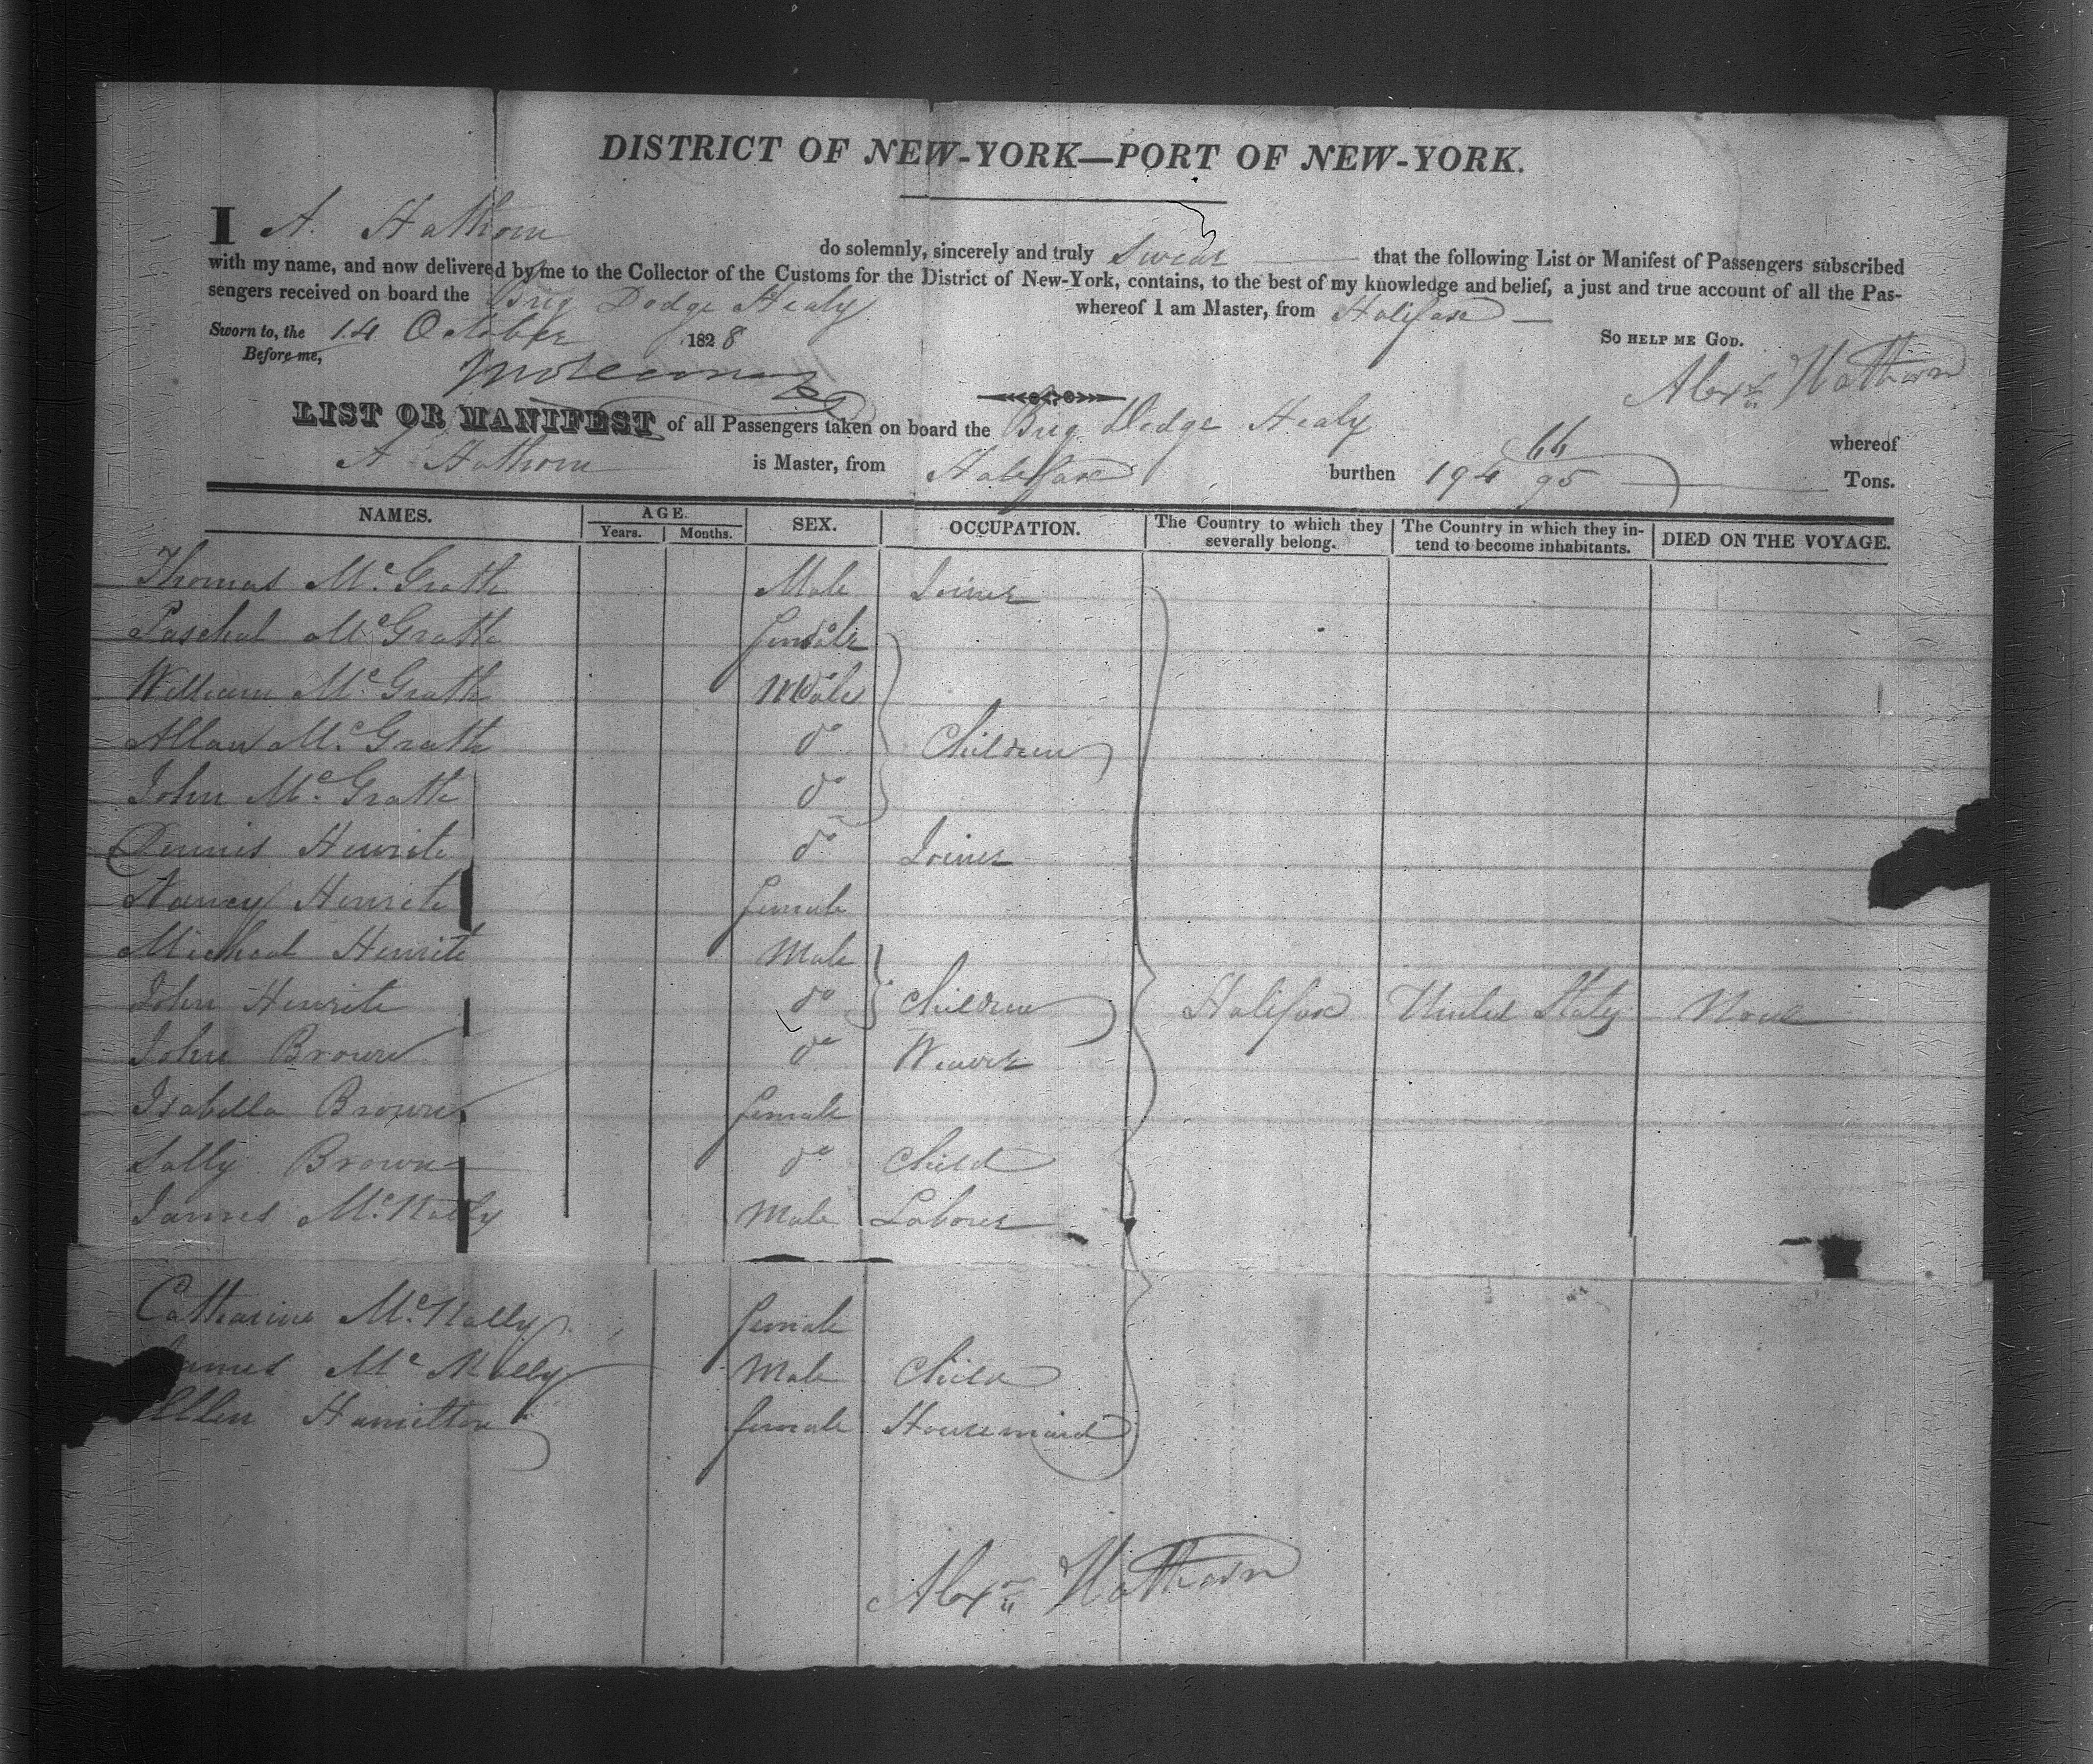 DISTRICT OF NEW-YORK—PORT OF NEW-YORK.
I A. Hathorn do solemnly, sincerely and truly Swear that the following List or Manifest of Passengers subscribed
with my name, and now delivered by me to the Collector of the Customs for the District of New-York, contains, to the best of my knowledge and belief, a just and true account of all the Pas-
sengers received on board the Brig Dodge Healy whereof I am Master, from Halifax
Sworn to, the 14 October 1828 So help me God.
Before me,
Alexr Hathorn
LIST OR MANIFEST of all Passengers taken on board the Brig Dodge Healy whereof
A Hathorn is Master, from Halifax burthen 194 64/95 Tons.
NAMES. AGE. Years. Months. SEX. OCCUPATION. The Country to which they severally belong. The Country in which they in-tend to become inhabitants. DIED ON THE VOYAGE.
Thomas McGrath Male Joiner
Paschal McGrath female
William McGrath Male
Allan McGrath do Children
John McGrath do
Dennis Hewrite do Joiner
Nancy Hewrite female
Micheal Hewrite Male
John Hewrite do Children Halifax United States None
John Brown do Weaver
Isabella Brown female
Sally Brown do Child
James McNally Male Laborer
Catharine McNally female
James McNally Male Child
Ellen Hamilton female Housemaid
Alexr Hathorn